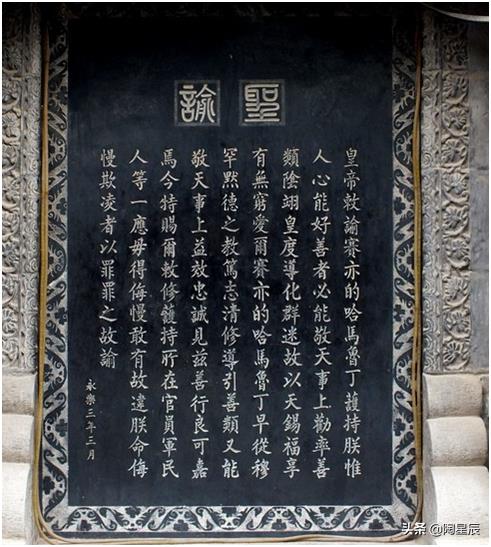 聖諭
皇帝敕諭賽亦的哈馬魯丁護持朕惟
人心能好善者必能敬天事上勸率善
類陰翊皇度導化群迷故以天錫福享
有無窮愛爾賽亦的哈馬魯丁早從穆
罕黙德之教篤志清修導引善類又能
敬天事上益效忠誠見兹善行良可嘉
馬今特賜爾敕修護持所在官員軍民
人等一應毋得侮慢敢有故違朕命侮
慢欺凌者以罪罪之故諭
永樂三年三月
头条 @阔星辰